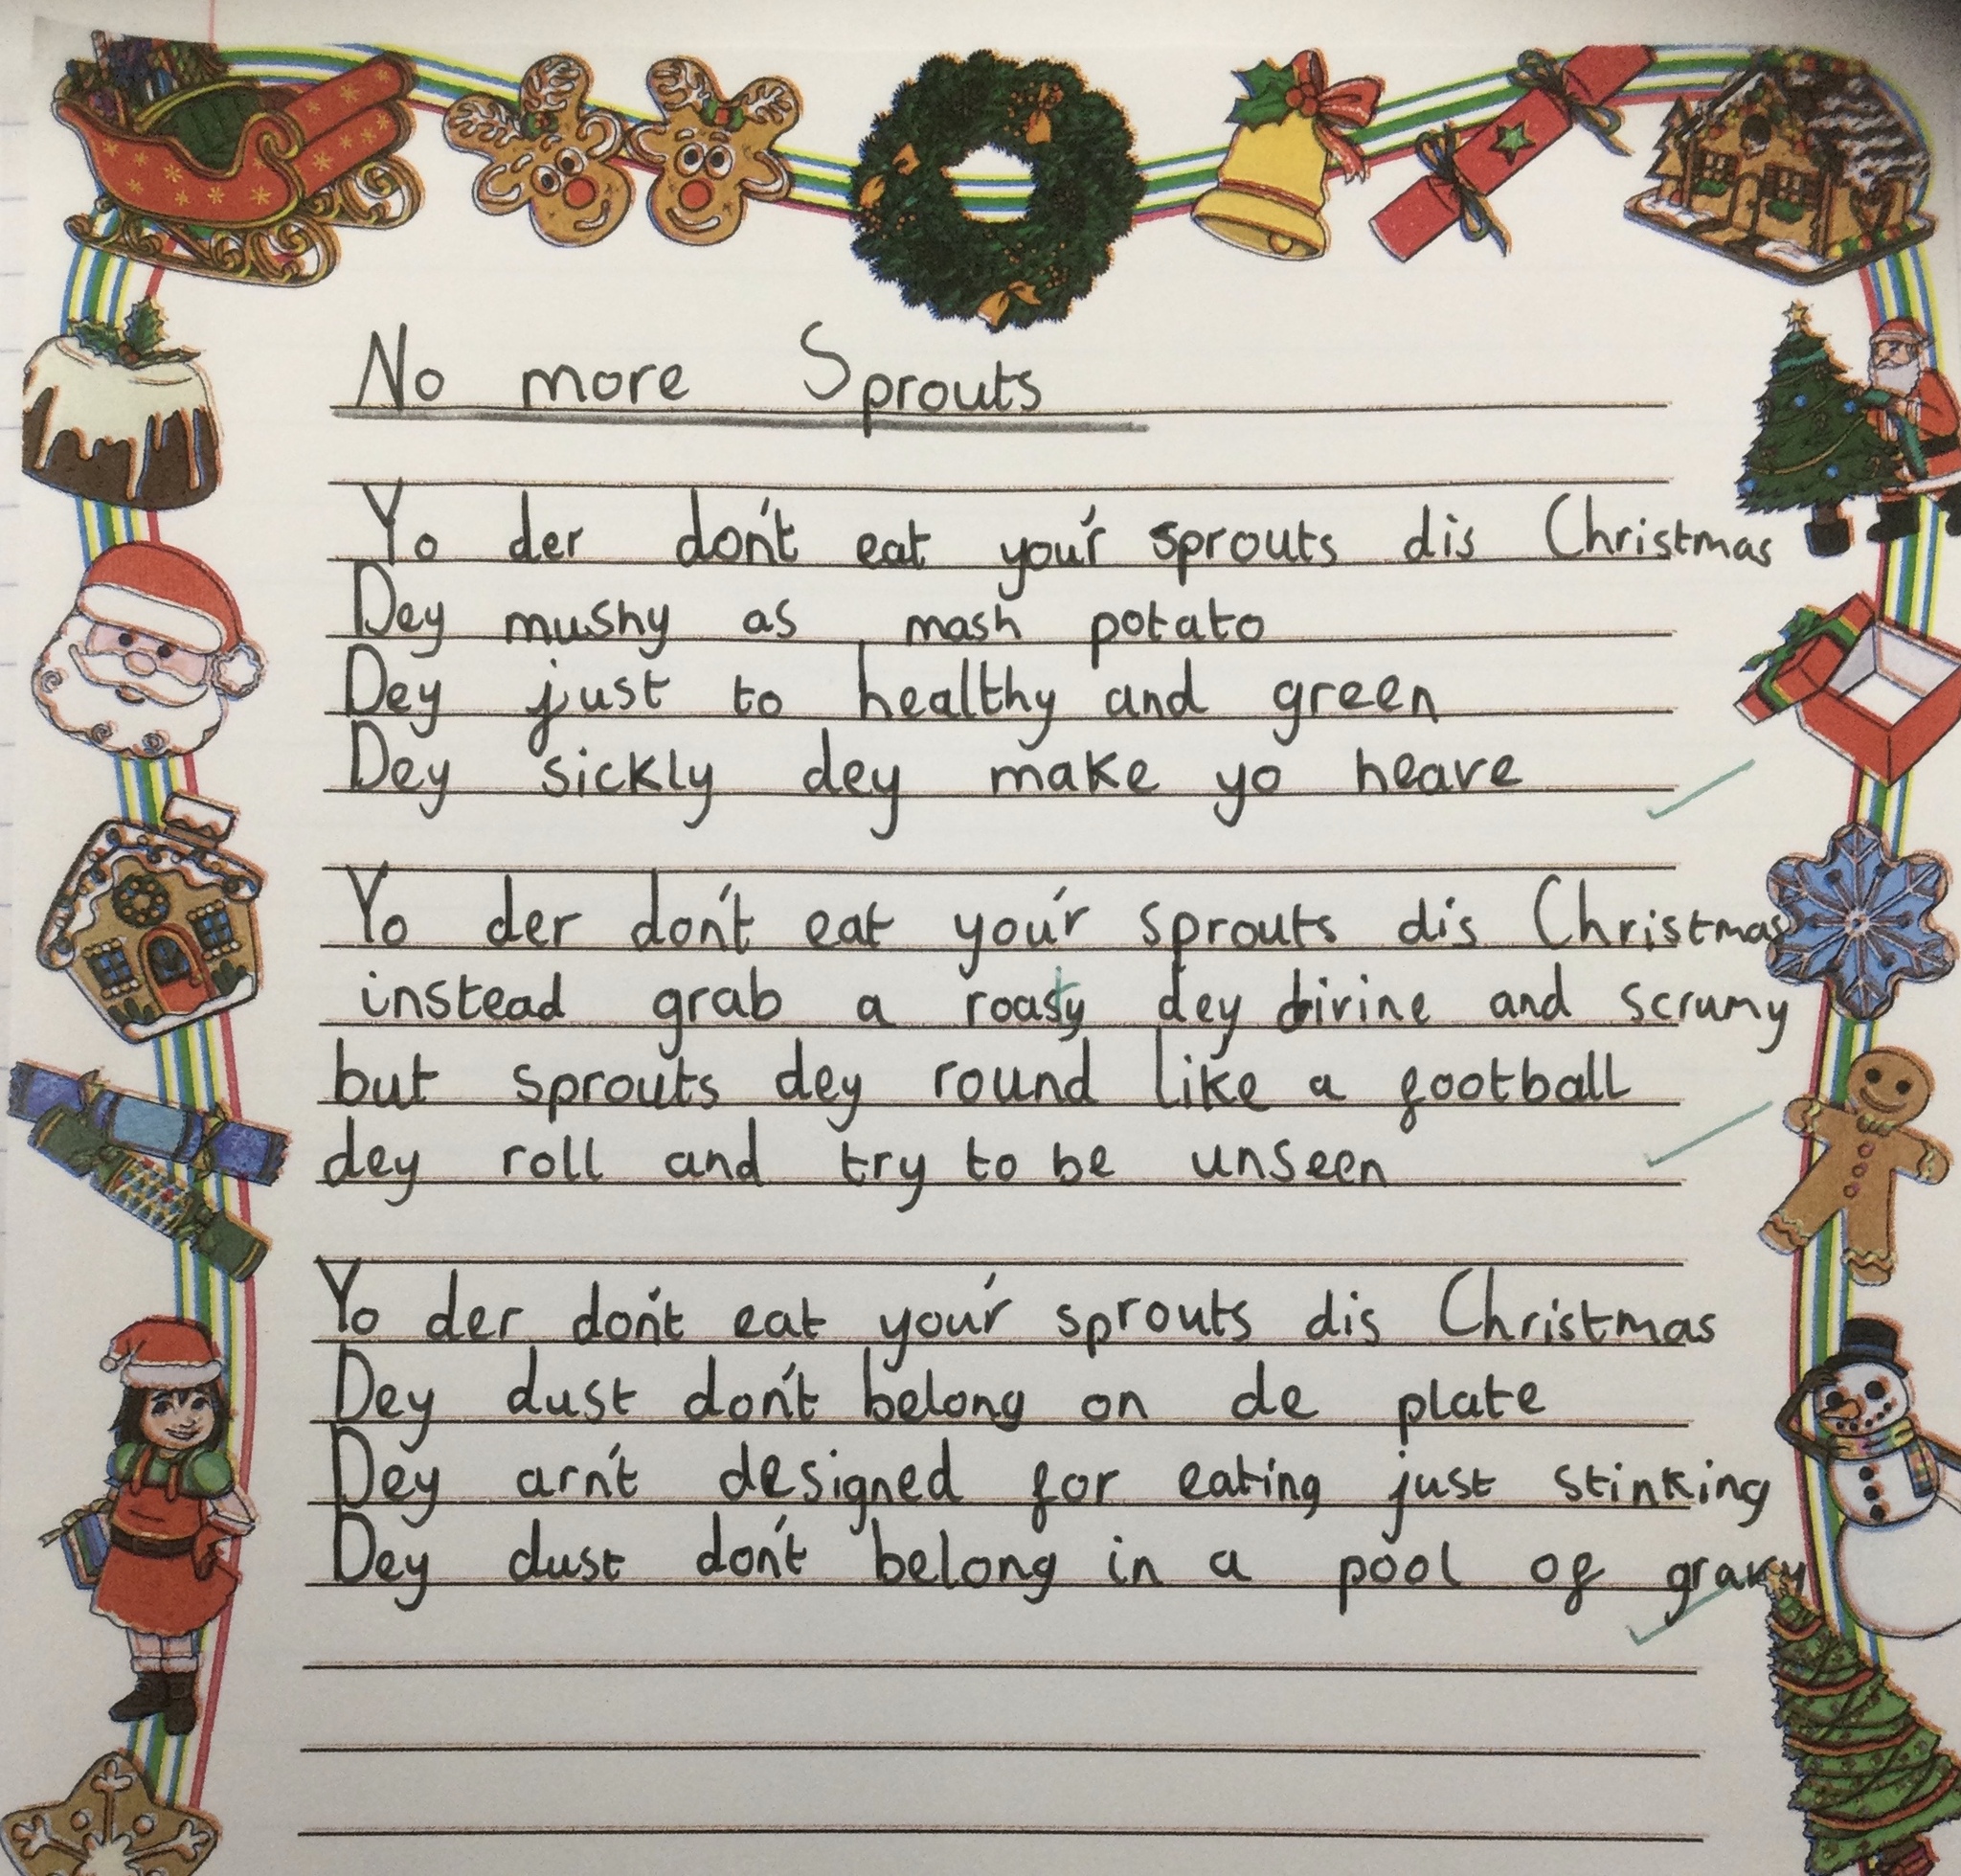 No more Sprouts
Yo der don't eat you'r sprouts dis Christmas
Dey mushy as mash potato
Dey just to healthy and green
Dey sickly dey make yo heave
Yo der don't eat you'r sprouts dis Christmas
instead grab a roasty dey divine and scrumy
but sprouts dey round like a football
dey roll and try to be unseen
Yo der don't eat you'r sprouts dis Christmas
Dey dust don't belong on de plate
Dey arn't designed for eating just stinking
Dey dust don't belong in a pool of gravy